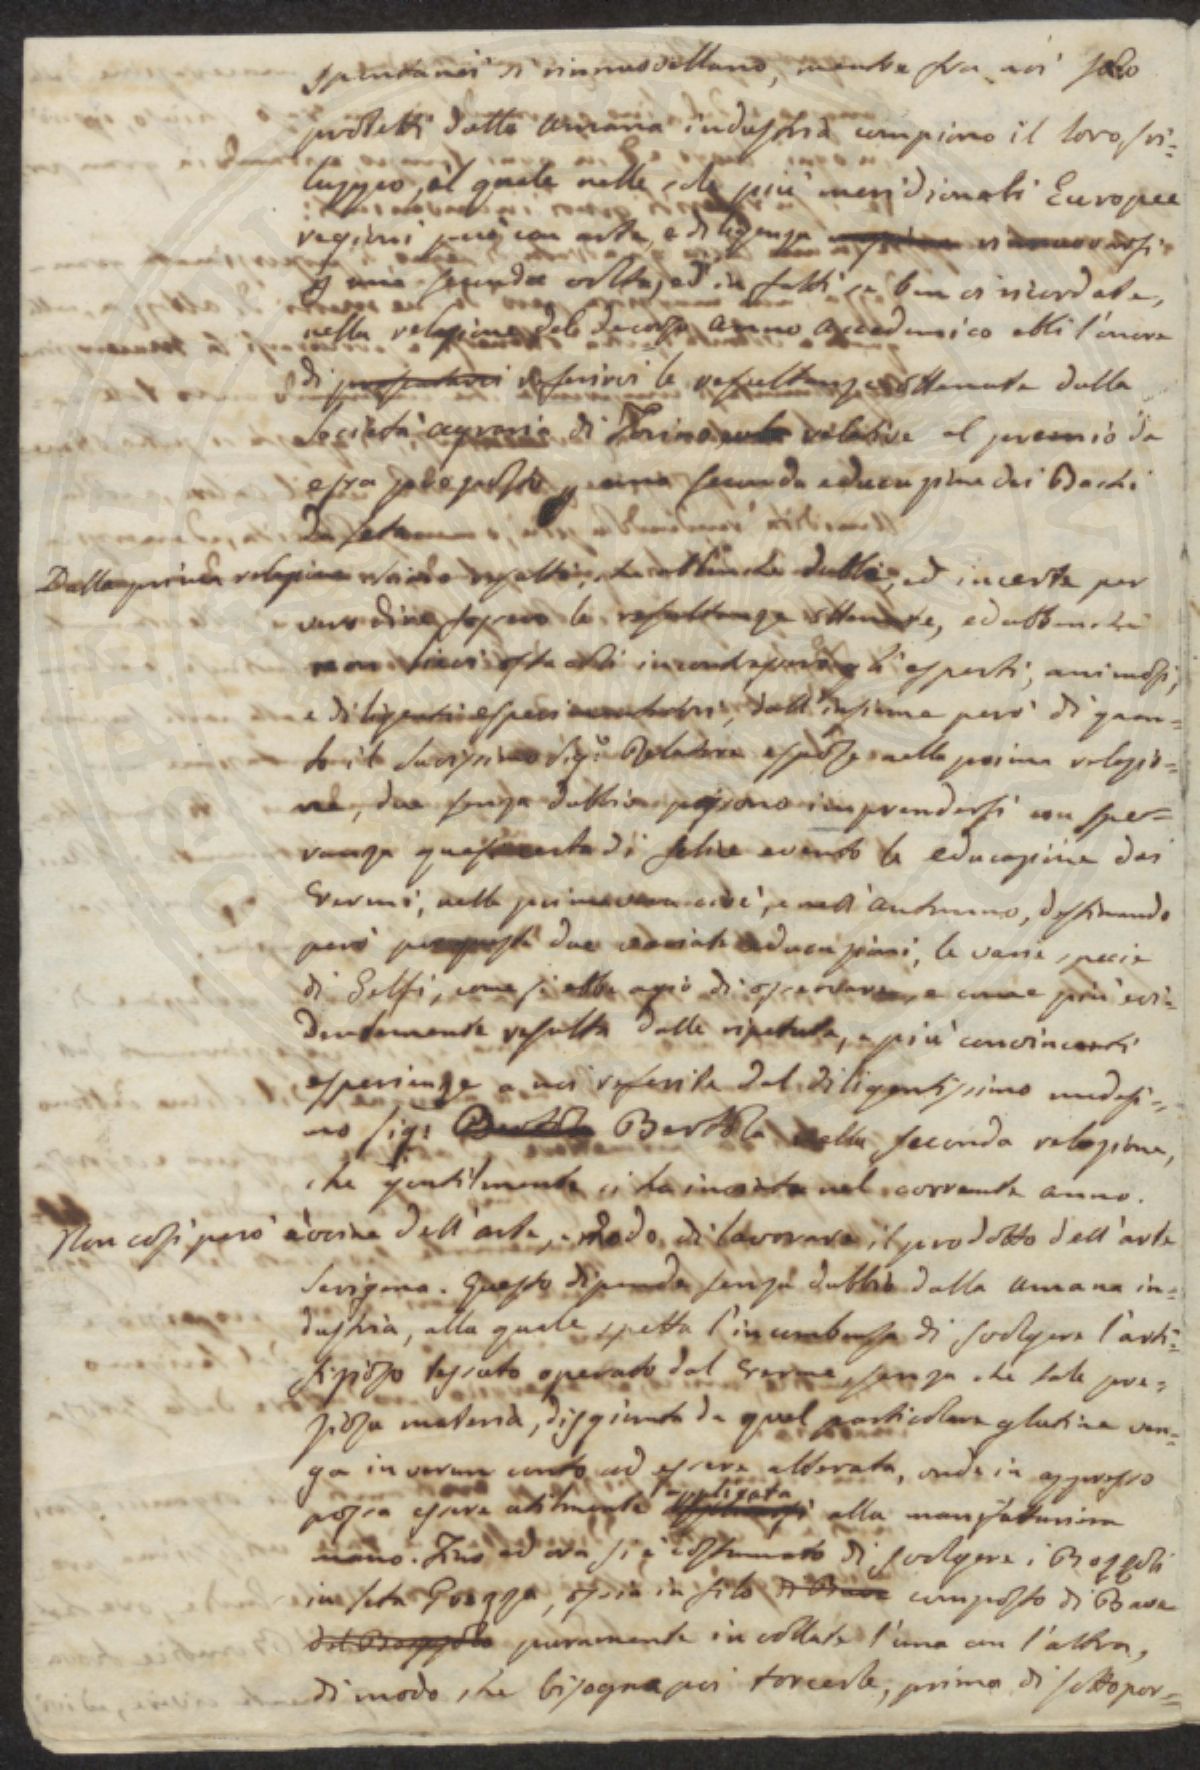 spontanei si rinnovellano, mentre fra noi solo
protetti dalla umana industria compiono il loro svi=
luppo, il quale nelle sole più meridionali Europee
regioni può con arte, e diligenza rinnovarsi
una seconda volta, ed in fatti se ben vi ricordate,
nella relazione del decorso anno Accademico ebbi l'onore
di riferirvi le resultanze ottenute dalla
Società agraria di Torino relative al premio da
essa proposto p una seconda educazione dei Bachi
da seta
Dalla prima relazione che abbenché dubbie, ed incerte per
vero dire fossero le resultanze ottenute, ed abbenché
non lievi ostacoli incontrassero gl'esperti, animosi,
e diligenti esperimentatori, dall'insieme però di quan=
to il Savissimo Sig.r Relatore espose nella prima relazio=
ne, due senza dubbio possono imprendersi con spe=
ranza quasi certa di felice evento le educazioni dei
Vermi, nella primavera cioè, e nell'Autunno, destinando
però per queste due variate educazioni, le varie specie
di Gelsi, come si ebbe agio di osservare, e come più evi=
dentemente resulta dalle ripetute, e più convincenti
esperienze a noi riferite dal diligentissimo medesi=
mo Sig.r Bertola nella seconda relazione,
che gentilmente ci ha inviata nel corrente anno.
Non così però avviene dell'arte, e modo di lavorare il prodotto dell'arte
Serigena. Questo dipende senza dubbio dalla umana in=
dustria, alla quale spetta l'incombenza di svolgere l'arti=
fizioso tessuto operato dal Verme, senza che tale pre=
ziosa materia, disgiunta da quel particolare glutine ven=
ga in verun conto ad essere alterata, onde in appresso
possa essere utilmente applicata alla manifattura
mano. Fino ad ora si è costumato di svolgere i Bozzoli
in seta Greggia, ossia in filo di Bave composto di Bave
del Bozzolo puramente incollate l'una con l'altra,
di modo che bisogna poi torcerle, prima di sottopor=